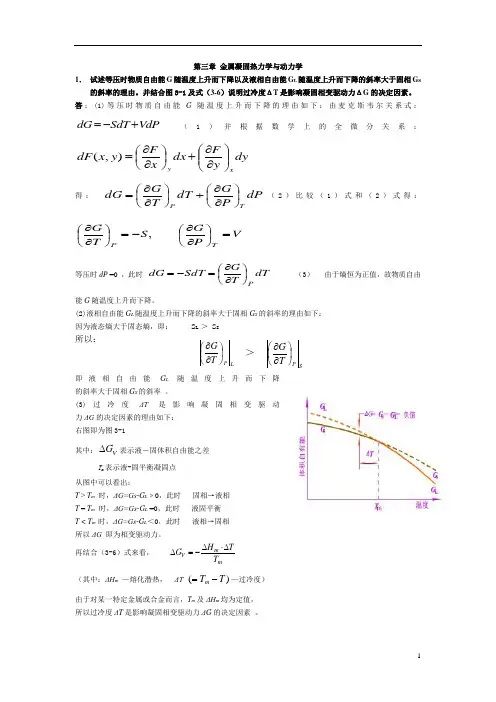 第三章 金属凝固热力学与动力学
1. 试述等压时物质自由能 G 随温度上升而下降以及液相自由能 GL 随温度上升而下降的斜率大于固相 GS
的斜率的理由。并结合图 3-1 及式（3-6）说明过冷度ΔT 是影响凝固相变驱动力ΔG 的决定因素。
答：(1)等压时物质自由能 G 随温度上升而下降的理由如下：由麦克斯韦尔关系式：
dG = −SdT + VdP （1）并根据数学上的全微分关系：
dF(x, y) = (∂F/∂x)_y dx + (∂F/∂y)_x dy
得： dG = (∂G/∂T)_P dT + (∂G/∂P)_T dP （2）比较（1）式和（2）式得：
(∂G/∂T)_P = −S, (∂G/∂P)_T = V
等压时 dP =0 ，此时 dG = −SdT = (∂G/∂T)_P dT （3） 由于熵恒为正值，故物质自由
能 G 随温度上升而下降。
(2)液相自由能 GL 随温度上升而下降的斜率大于固相 GS 的斜率的理由如下：
因为液态熵大于固态熵，即： SL ＞ SS
所以：
(∂G/∂T)_P L ＞ (∂G/∂T)_P S
即液相自由能 GL 随温度上升而下降
的斜率大于固相 GS 的斜率 。
(3)过冷度 ΔT 是影响凝固相变驱动
力 ΔG 的决定因素的理由如下：
右图即为图 3-1
其中：ΔGV 表示液－固体积自由能之差
Tm 表示液-固平衡凝固点
从图中可以看出：
T > Tm 时，ΔG=GS-GL﹥0，此时 固相→液相
T = Tm 时，ΔG=GS-GL =0，此时 液固平衡
T < Tm 时，ΔG=GS-GL＜0，此时 液相→固相
所以 ΔG 即为相变驱动力。
再结合（3-6）式来看， ΔGV = −ΔHm·ΔT/Tm
（其中：ΔHm —熔化潜热， ΔT (= Tm − T) —过冷度）
由于对某一特定金属或合金而言，Tm 及 ΔHm 均为定值，
所以过冷度 ΔT 是影响凝固相变驱动力 ΔG 的决定因素 。
GL
ΔG= GS - GL = 负值
GS
ΔT
GS
GL
体积自由能
Tm
温度
1